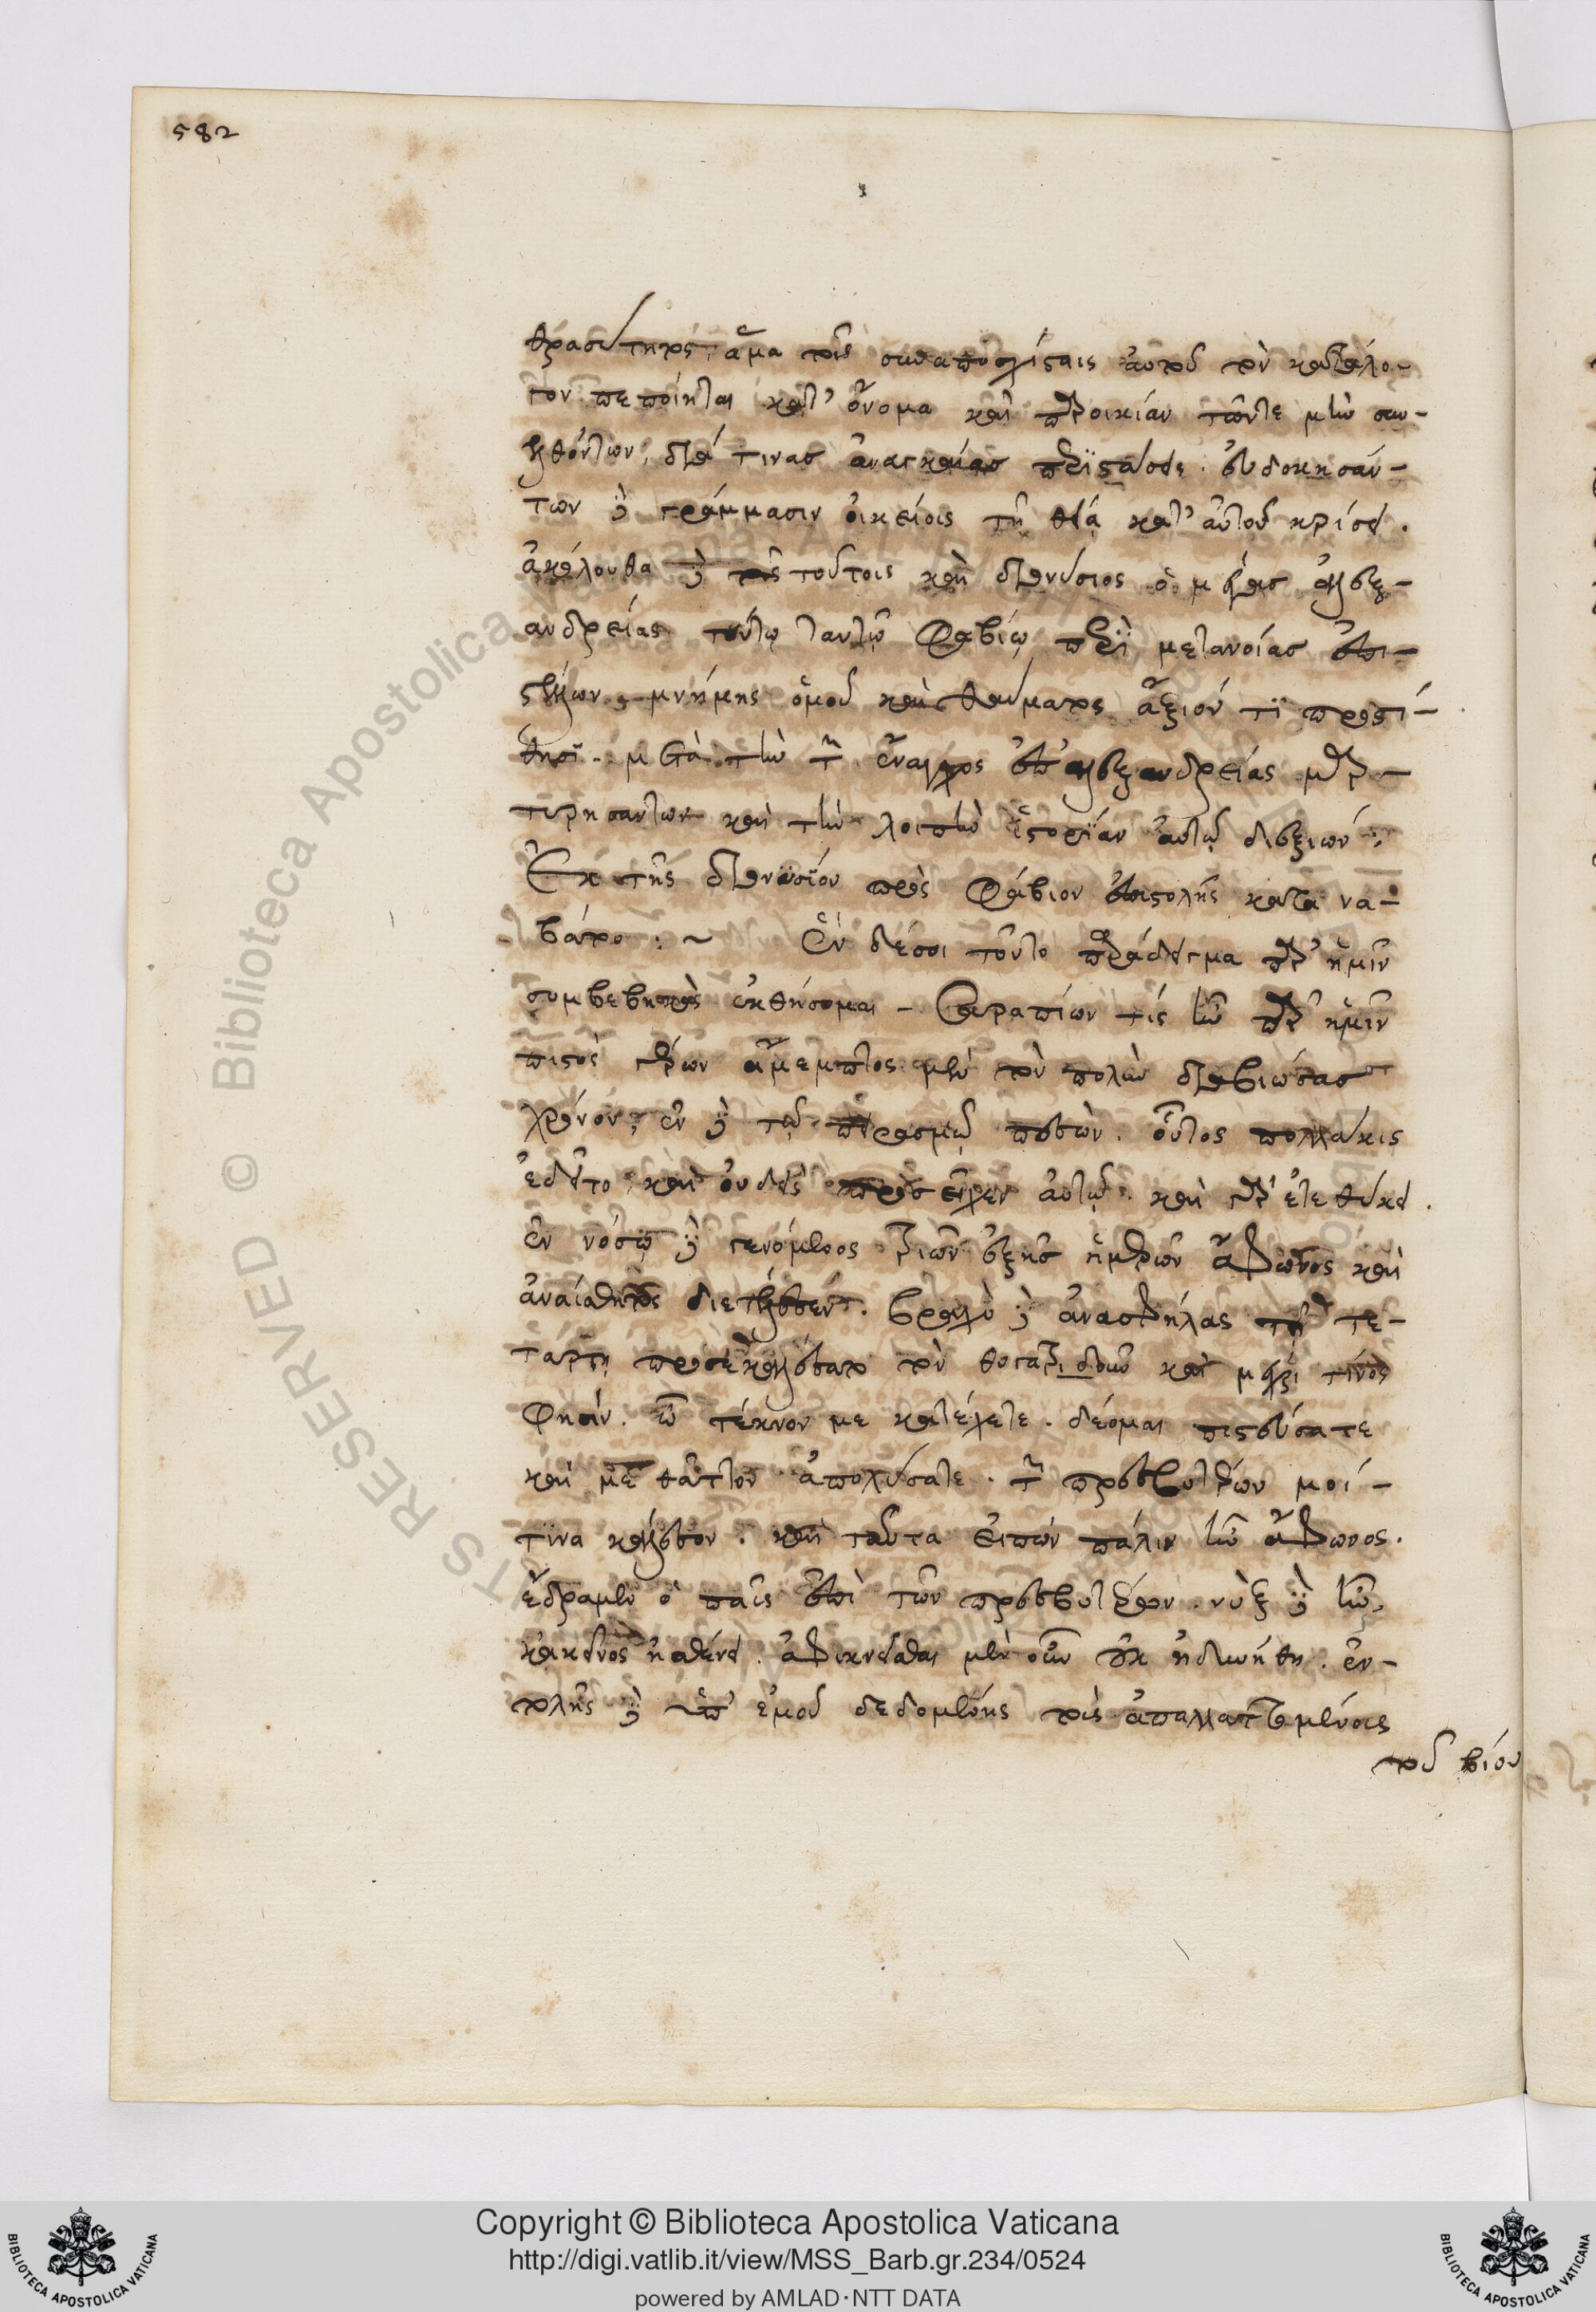 582
θρασύτητος, ἅμα τοῖς συναποσχίσαις αὐτοῦ τὸν κατάλο-
γον πεποίηται κατ' ὄνομα καὶ παροικίαν τῶντε μὴν συν-
ελθόντων, διά τινας ἀνάγκας περϊϊστάσει. εὐδοκησάν-
των δὲ γράμμασιν οἰκείοις τῇ θεία κατ' αὐτοῦ κρίσει.
ἀκόλουθα δὲ τοῖς τούτοις καὶ διονύσιος ὁ μέγας ἀλεξ-
ανδρείας τούτω ταυτῷ Φαβίῳ περϊ μετανοίας ἐπι-
στέλλων, μνήμης ὁμοῦ καὶ θαύματος ἄξιόν τι προστί-
θησϊ. μετὰ τὴν τῶν ἔναγχος ἐπ' ἀλεξανδρείας μαρ-
τυρησάντων καὶ τὴν λοιπὴν ἱστορϊαν αὐτῷ διεξιών:
Ἐκ τῆς διονυσίου πρὸς Φάβιον ἐπιστολῆς κατὰ να-
βάτο :~ Ἓν δέσοι τοῦτο παράδειγμα παρ' ἡμῖν
συμβεβηκὸς ἐκθήσομαι - Σεραπίων τίς ἦν παρ' ἡμῖν
πιστὸς γέρων ἀμέμπτος μὲν τὸν πολὺν διαβιώσας
χρόνον, ἐν δὲ τῷ πειρασμῷ πεσών. οὗτος πολλάκις
ἐδεῖτο, καὶ οὐδεὶς προσεῖχεν αὐτῷ. καὶ γὰρ ἐτεθύκει.
ἐν νόσῳ δὲ γενόμενος τριῶν ἑξῆς ἡμερῶν ἄφωνος καὶ
ἀναίσθητος διετέλεσεν. βραχὺ δὲ ἀνασφήλας τῇ τε-
τάρτῃ προσεκαλέσατο τὸν θυγατριδοῦν καὶ μέχρι τινὸς
Φησίν. ὦ τέκνον με κατέχετε. δέομαι πιστεύσατε
καὶ με θᾶττον ἀπολύσατε. τῶν πρεσβυτέρων μοί-
τινα κάλεσον. καὶ ταῦτα εἰπὼν πάλιν ἦν ἄφωνος.
ἔδραμεν ὁ παῖς ἐπὶ τὸν πρεσβύτερον. νὺξ δὲ ἦν,
κἀκεῖνος ἠσθένει. ἀφικνεῖσθαι μὲν οὖν οὐκ ἠδυνήθη. ἐν-
τολῆς δὲ ὑπ' ἐμοῦ δεδομένης τοῖς ἀπαλλαττομένοις
τοῦ βίου
Copyright © Biblioteca Apostolica Vaticana
http://digi.vatlib.it/view/MSS_Barb.gr.234/0524
powered by AMLAD·NTT DATA